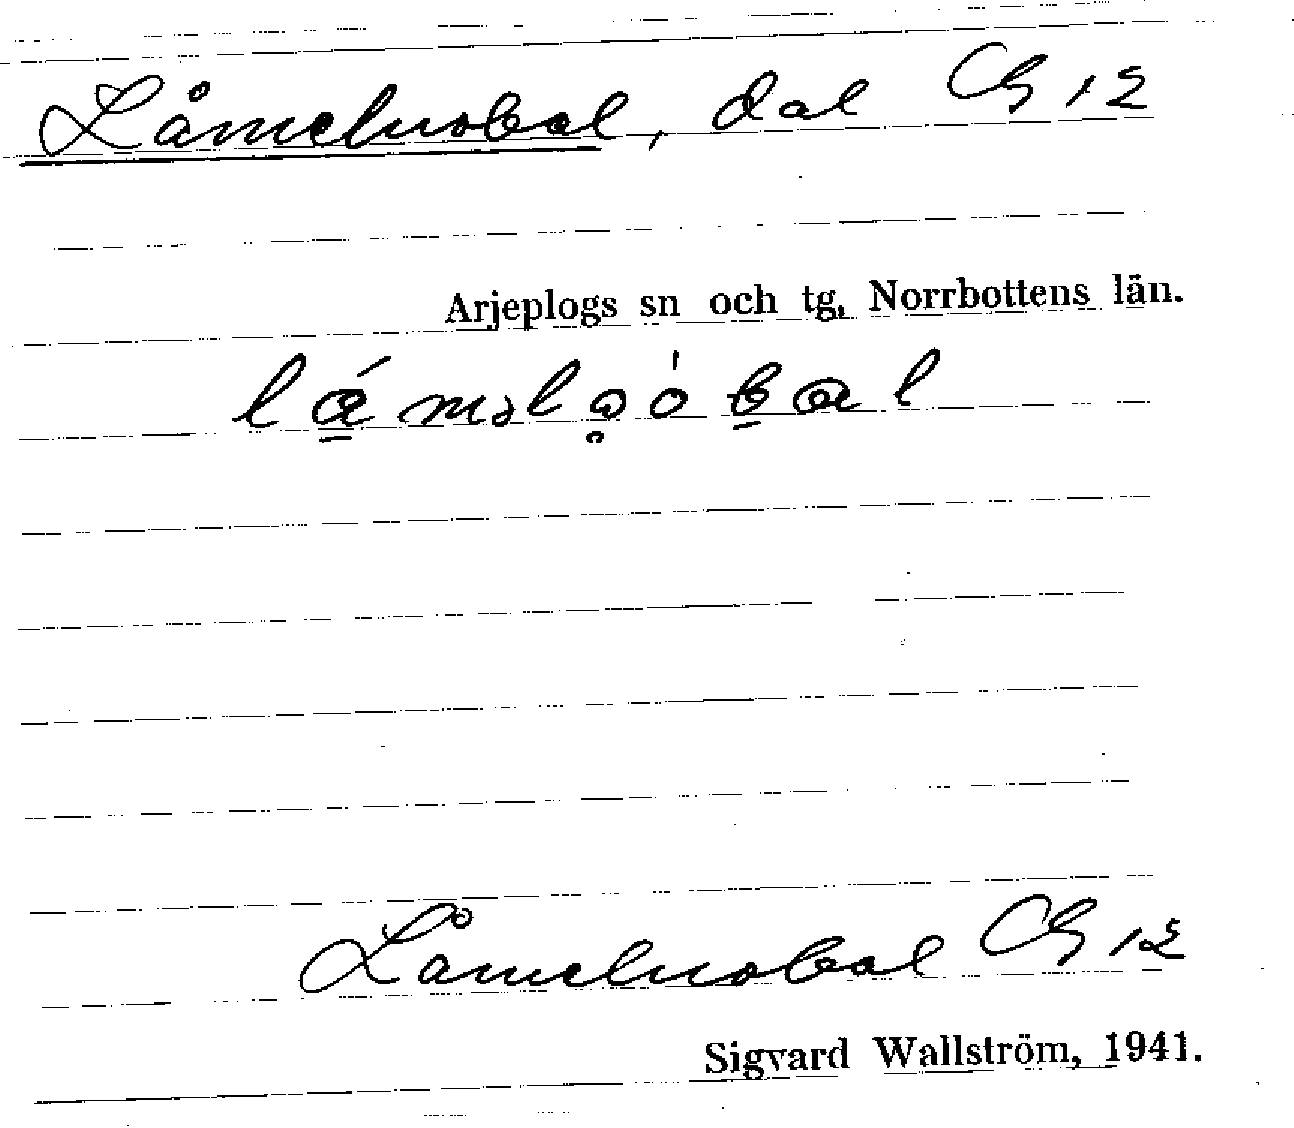 Låmeluobal, dal Cg 12
Arjeplogs sn och tg, Norrbottens län.
Låmeluobal Cg 12
Sigvard Wallström, 1941.